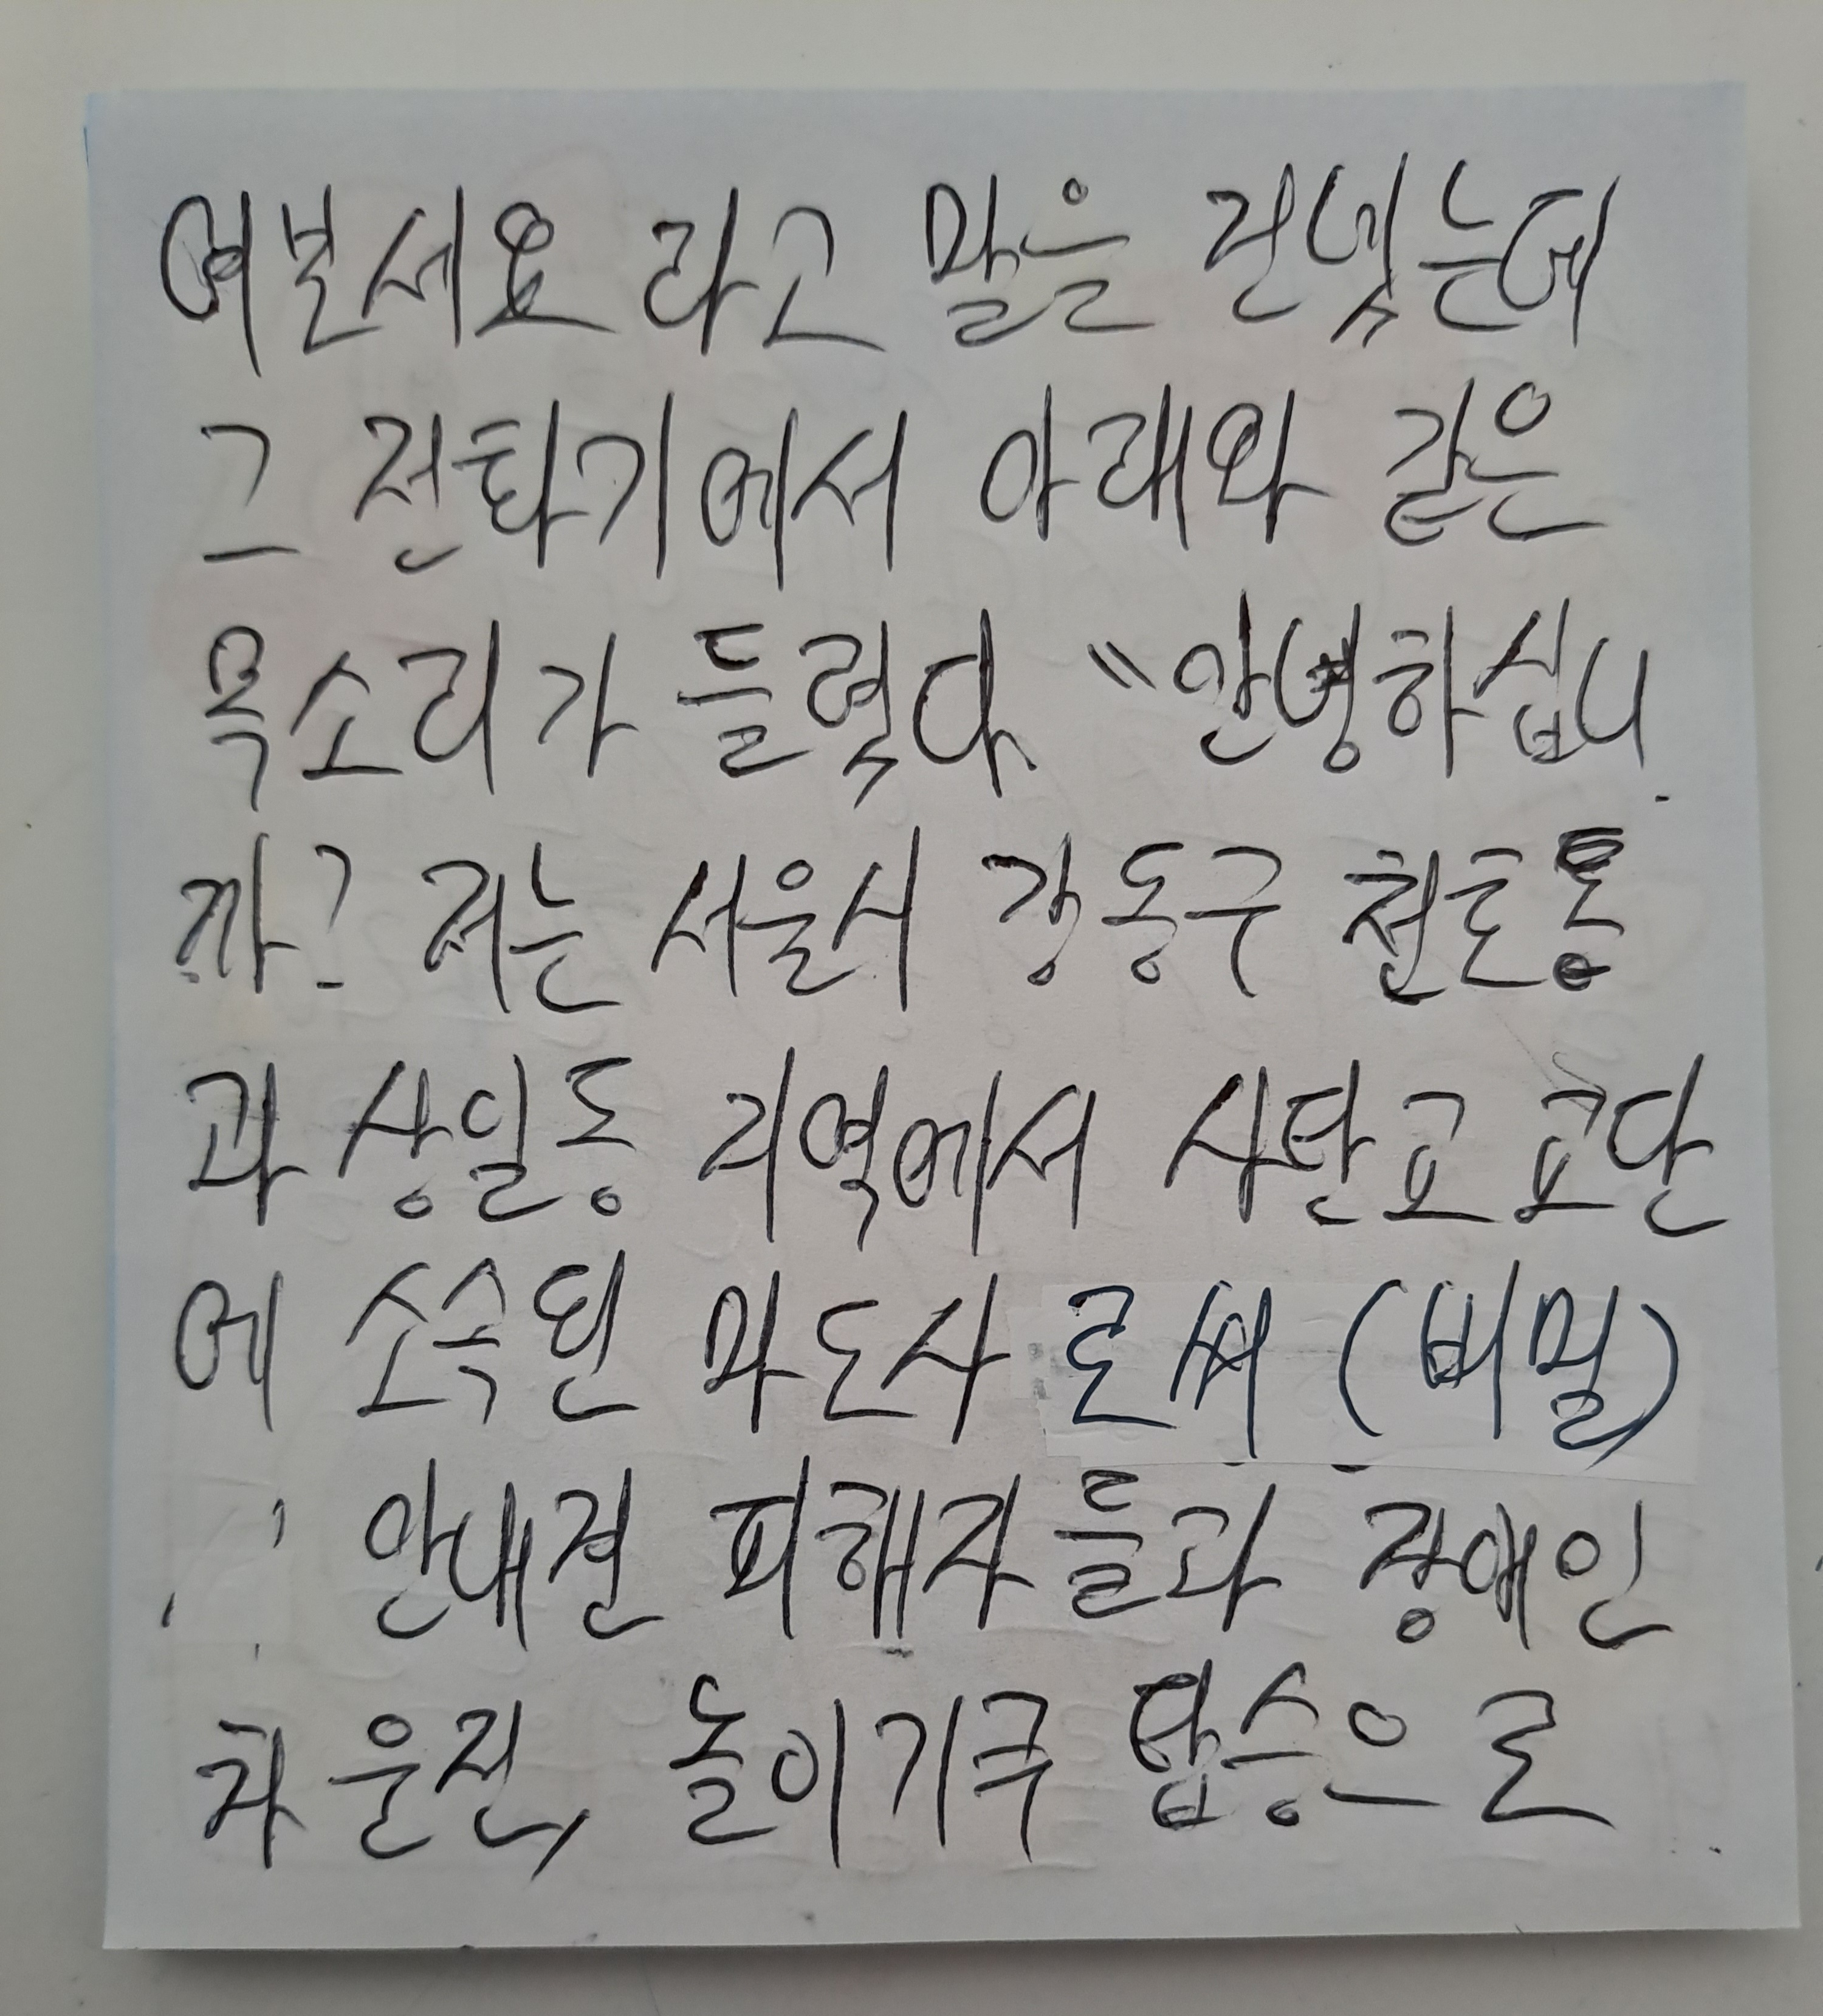 여보세요 라고 말을 건넸는데
그 전화기에서 아래와 같은
목소리가 들렸다 "안녕하십니
까? 저는 서울시 강동구 천호동
과 상일동 지역에서 사탄교 교단
에 소속된 마도사 로써 (비밀)
안내견 피해자들과 장애인
차 운전, 놀이기구 탑승으로